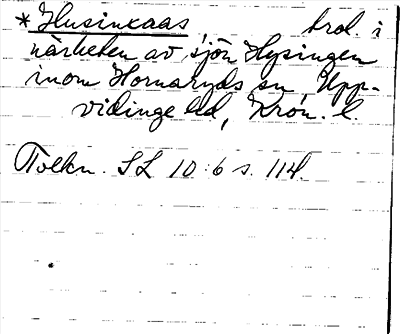 *Husinxaas trol. i
närheten av sjön Hysingen
inom Hornaryds sn, Upp-
vidinge hd, Kron. l.
Tolkn. SL 10:6 s. 114.